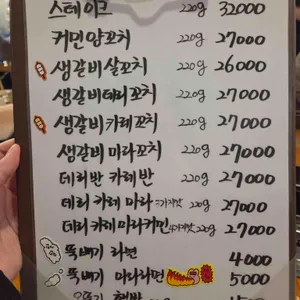 스테이크 220g 32000
커민양꼬치 220g 27000
생갈비살꼬치 220g 26000
생갈비데리꼬치 220g 27000
생갈비카레꼬치 220g 27000
생갈비마라꼬치 220g 27000
데리반 카레반 220g 27000
데리 카레 마라 220g 27000
데리 카레 마라커민 4가지맛 220g 27000
뚝빼기 라면 4000
뚝빼기 마라라면 5000